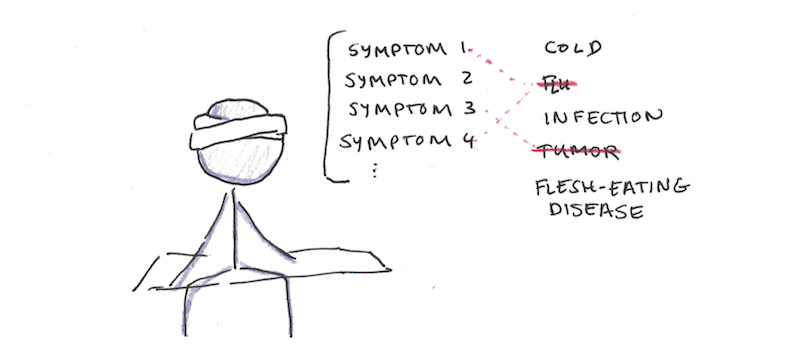 SYMPTOM 1
SYMPTOM 2
SYMPTOM 3
SYMPTOM 4
⋮
COLD
FLU
INFECTION
TUMOR
FLESH-EATING
DISEASE